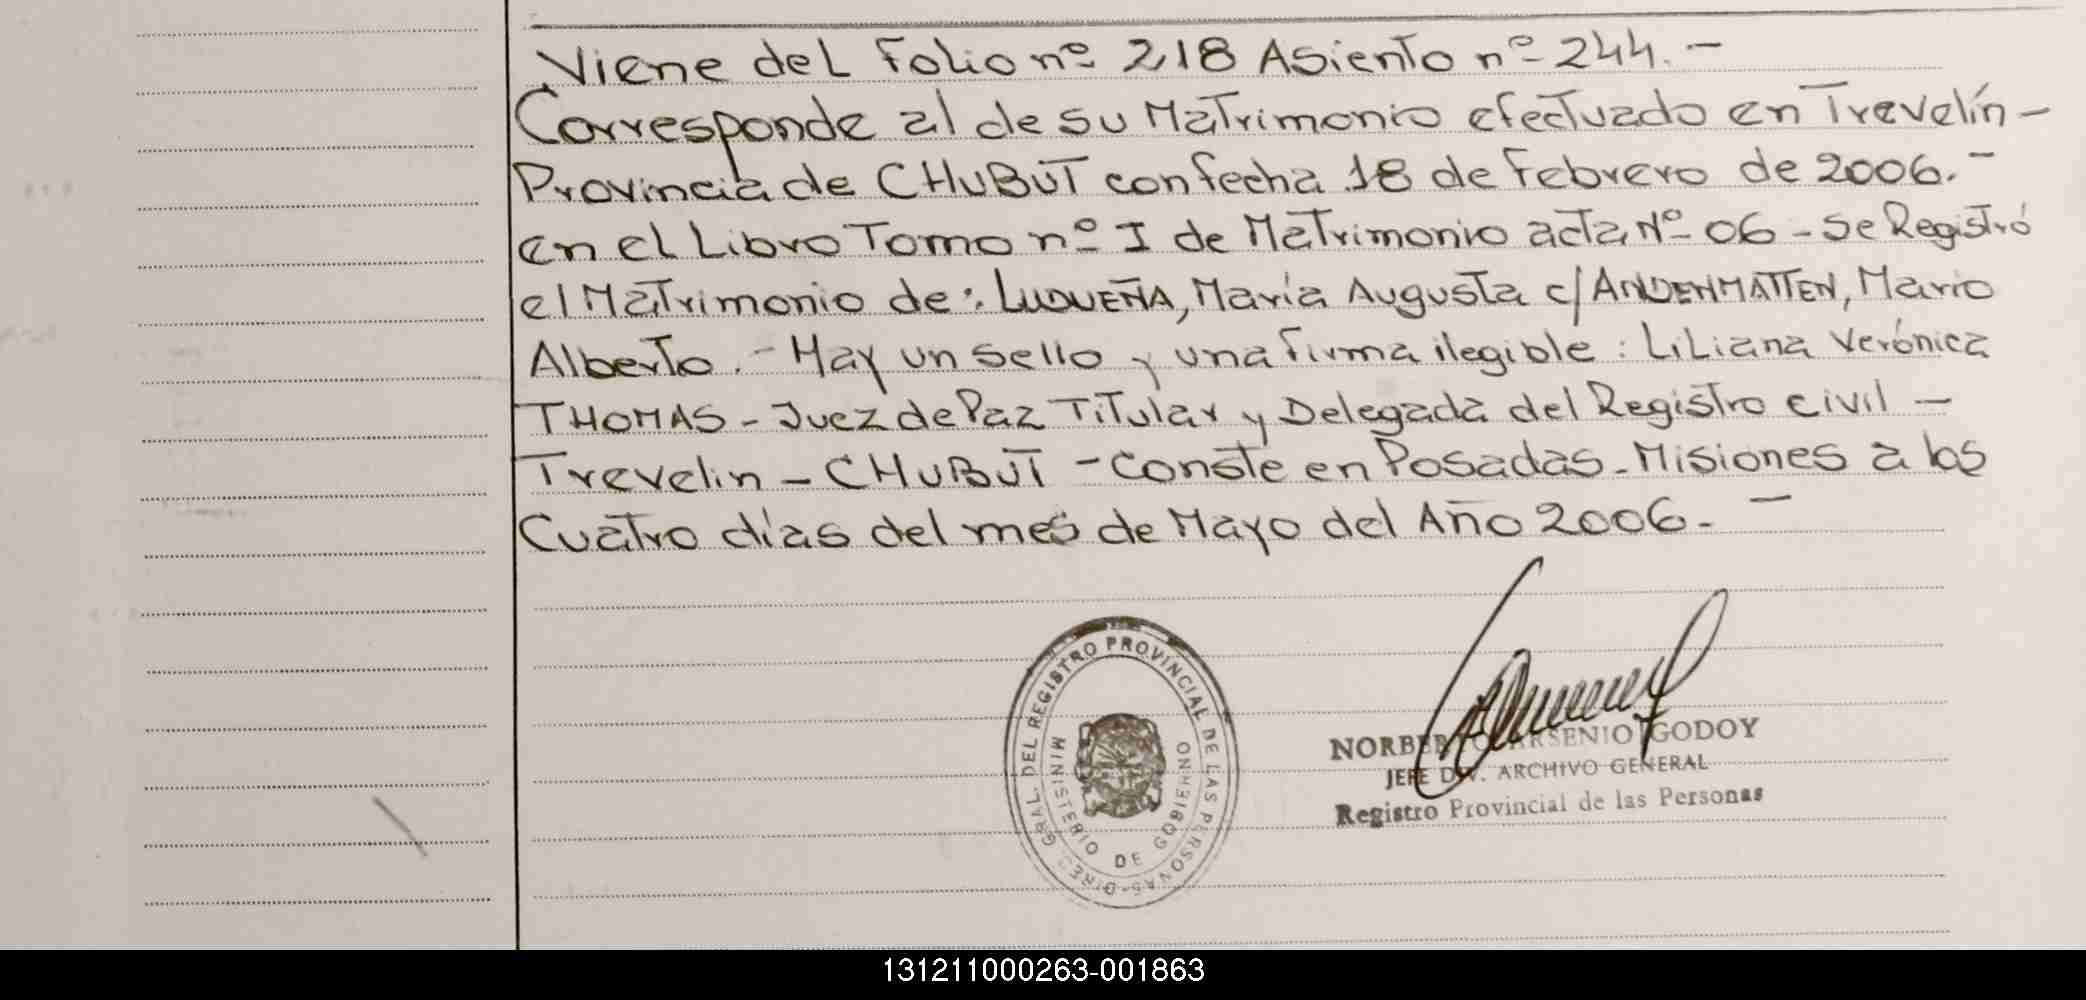 Viene del Folio nº 218 Asiento nº 244.-
Corresponde al de su Matrimonio efectuado en Trevelín-
Provincia de CHUBUT con fecha 18 de Febrero de 2006.-
en el Libro Tomo nº I de Matrimonio acta Nº 06 - se Registró
el Matrimonio de: LUDUEÑA, María Augusta c/ ANDENMATTEN, Mario
Alberto.- Hay un sello y una firma ilegible: Liliana Verónica
THOMAS - Juez de Paz Titular y Delegada del Registro Civil -
Trevelin - CHUBUT - Conste en Posadas - Misiones a los
Cuatro días del mes de Mayo del Año 2006.-
DIREC. GRAL. DEL REGISTRO PROVINCIAL DE LAS PERSONAS-
MINISTERIO DE GOBIERNO
NORBERTO ARSENIO GODOY
JEFE DIV. ARCHIVO GENERAL
Registro Provincial de las Personas
131211000263-001863